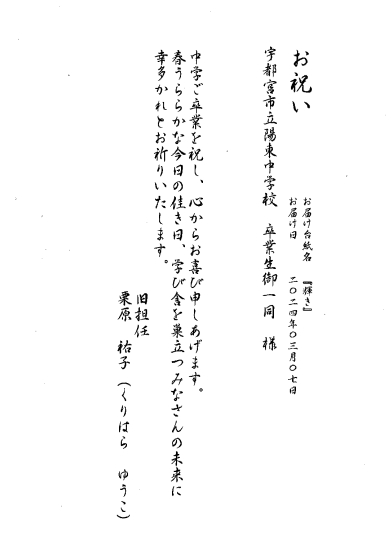 お祝い
お届け台紙名 『輝き』
お届け日 二〇二四年〇三月〇七日
宇都宮市立陽東中学校 卒業生御一同 様
中学ご卒業を祝し、心からお喜び申しあげます。
春うららかな今日の佳き日、学び舎を巣立つみなさんの未来に
幸多かれとお祈りいたします。
旧担任
栗原 祐子(くりはら ゆうこ)